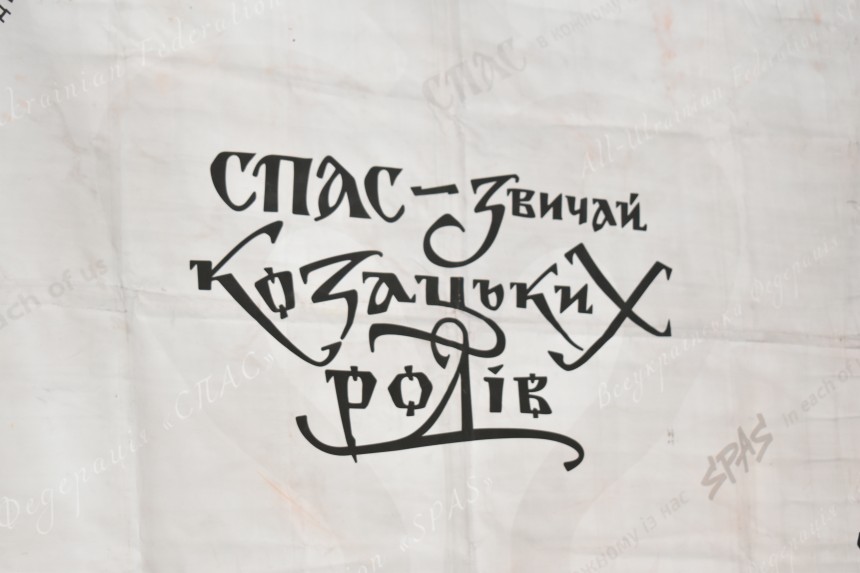 СПАС – Звичай
козацьких
родів
Ukrainian Federation
СПАС в кожному
All-Ukrainian Federation
each of us
Всеукраїнська Федерація
Федерація «СПАС»
SPAS in each of
кожному із нас
«SPAS»